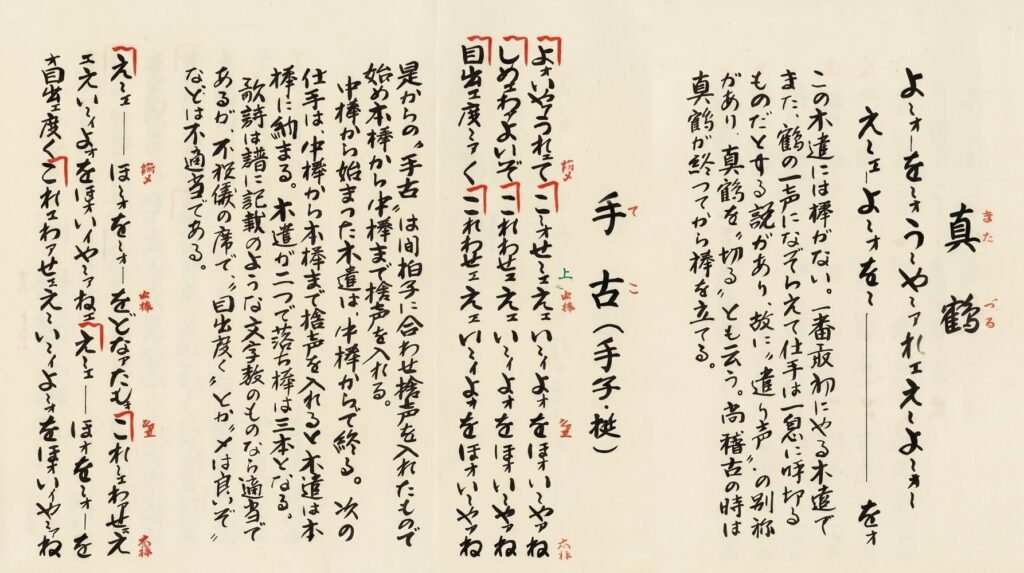 真鶴
また づる
よ〜ォーを〜ォう〜や〜ァれェえ〜よ〜ォー
え〜エーよ〜ォを〜――――をォ
この木遣には棒がない。一番最初にやる木遣で
また、鶴の一声になぞらえて仕手は一息に呼切る
ものだとする説があり、故に〝遣り声〟の別称
があり、真鶴を〝切る〟とも云う。尚稽古の時は
真鶴が終ってから棒を立てる。
手古(手子・梃)
て こ
よォいやうれェて こ〜ォせ〜ェえェい〜ィよォをほォい〜やァね
しめェわァよいぞ これわせェえェい〜ィよォをほォい〜やァね
目出ェ度〜ァく これわせェえェい〜ィよォをほォい〜やァね
上
是からの〝手古〟は間拍子に合わせ捨声を入れたもので
始め本棒から中棒まで捨声を入れる。
中棒から始まった木遣は、中棒からで終る。次の
仕手は、中棒から本棒まで捨声を入れると木遣は本
棒に納まる。木遣が二つで落ち棒は三本となる。
歌詩は譜に記載のような文字数のものなら適当で
あるが、不祝儀の席で、〝目出度く〟とか〝〆は良いぞ〟
などは不適当である。
え〜エ――ほ〜ォを〜ォーをどなァたもォこれ〜ェわァせェえ
エえい〜ィよォをほォいィや〜ァねェえ〜エ――ほォを〜ォーを
ォ目出ェ度くこれェわァせェえ〜い〜ィよ〜ォをほォいィや〜ね